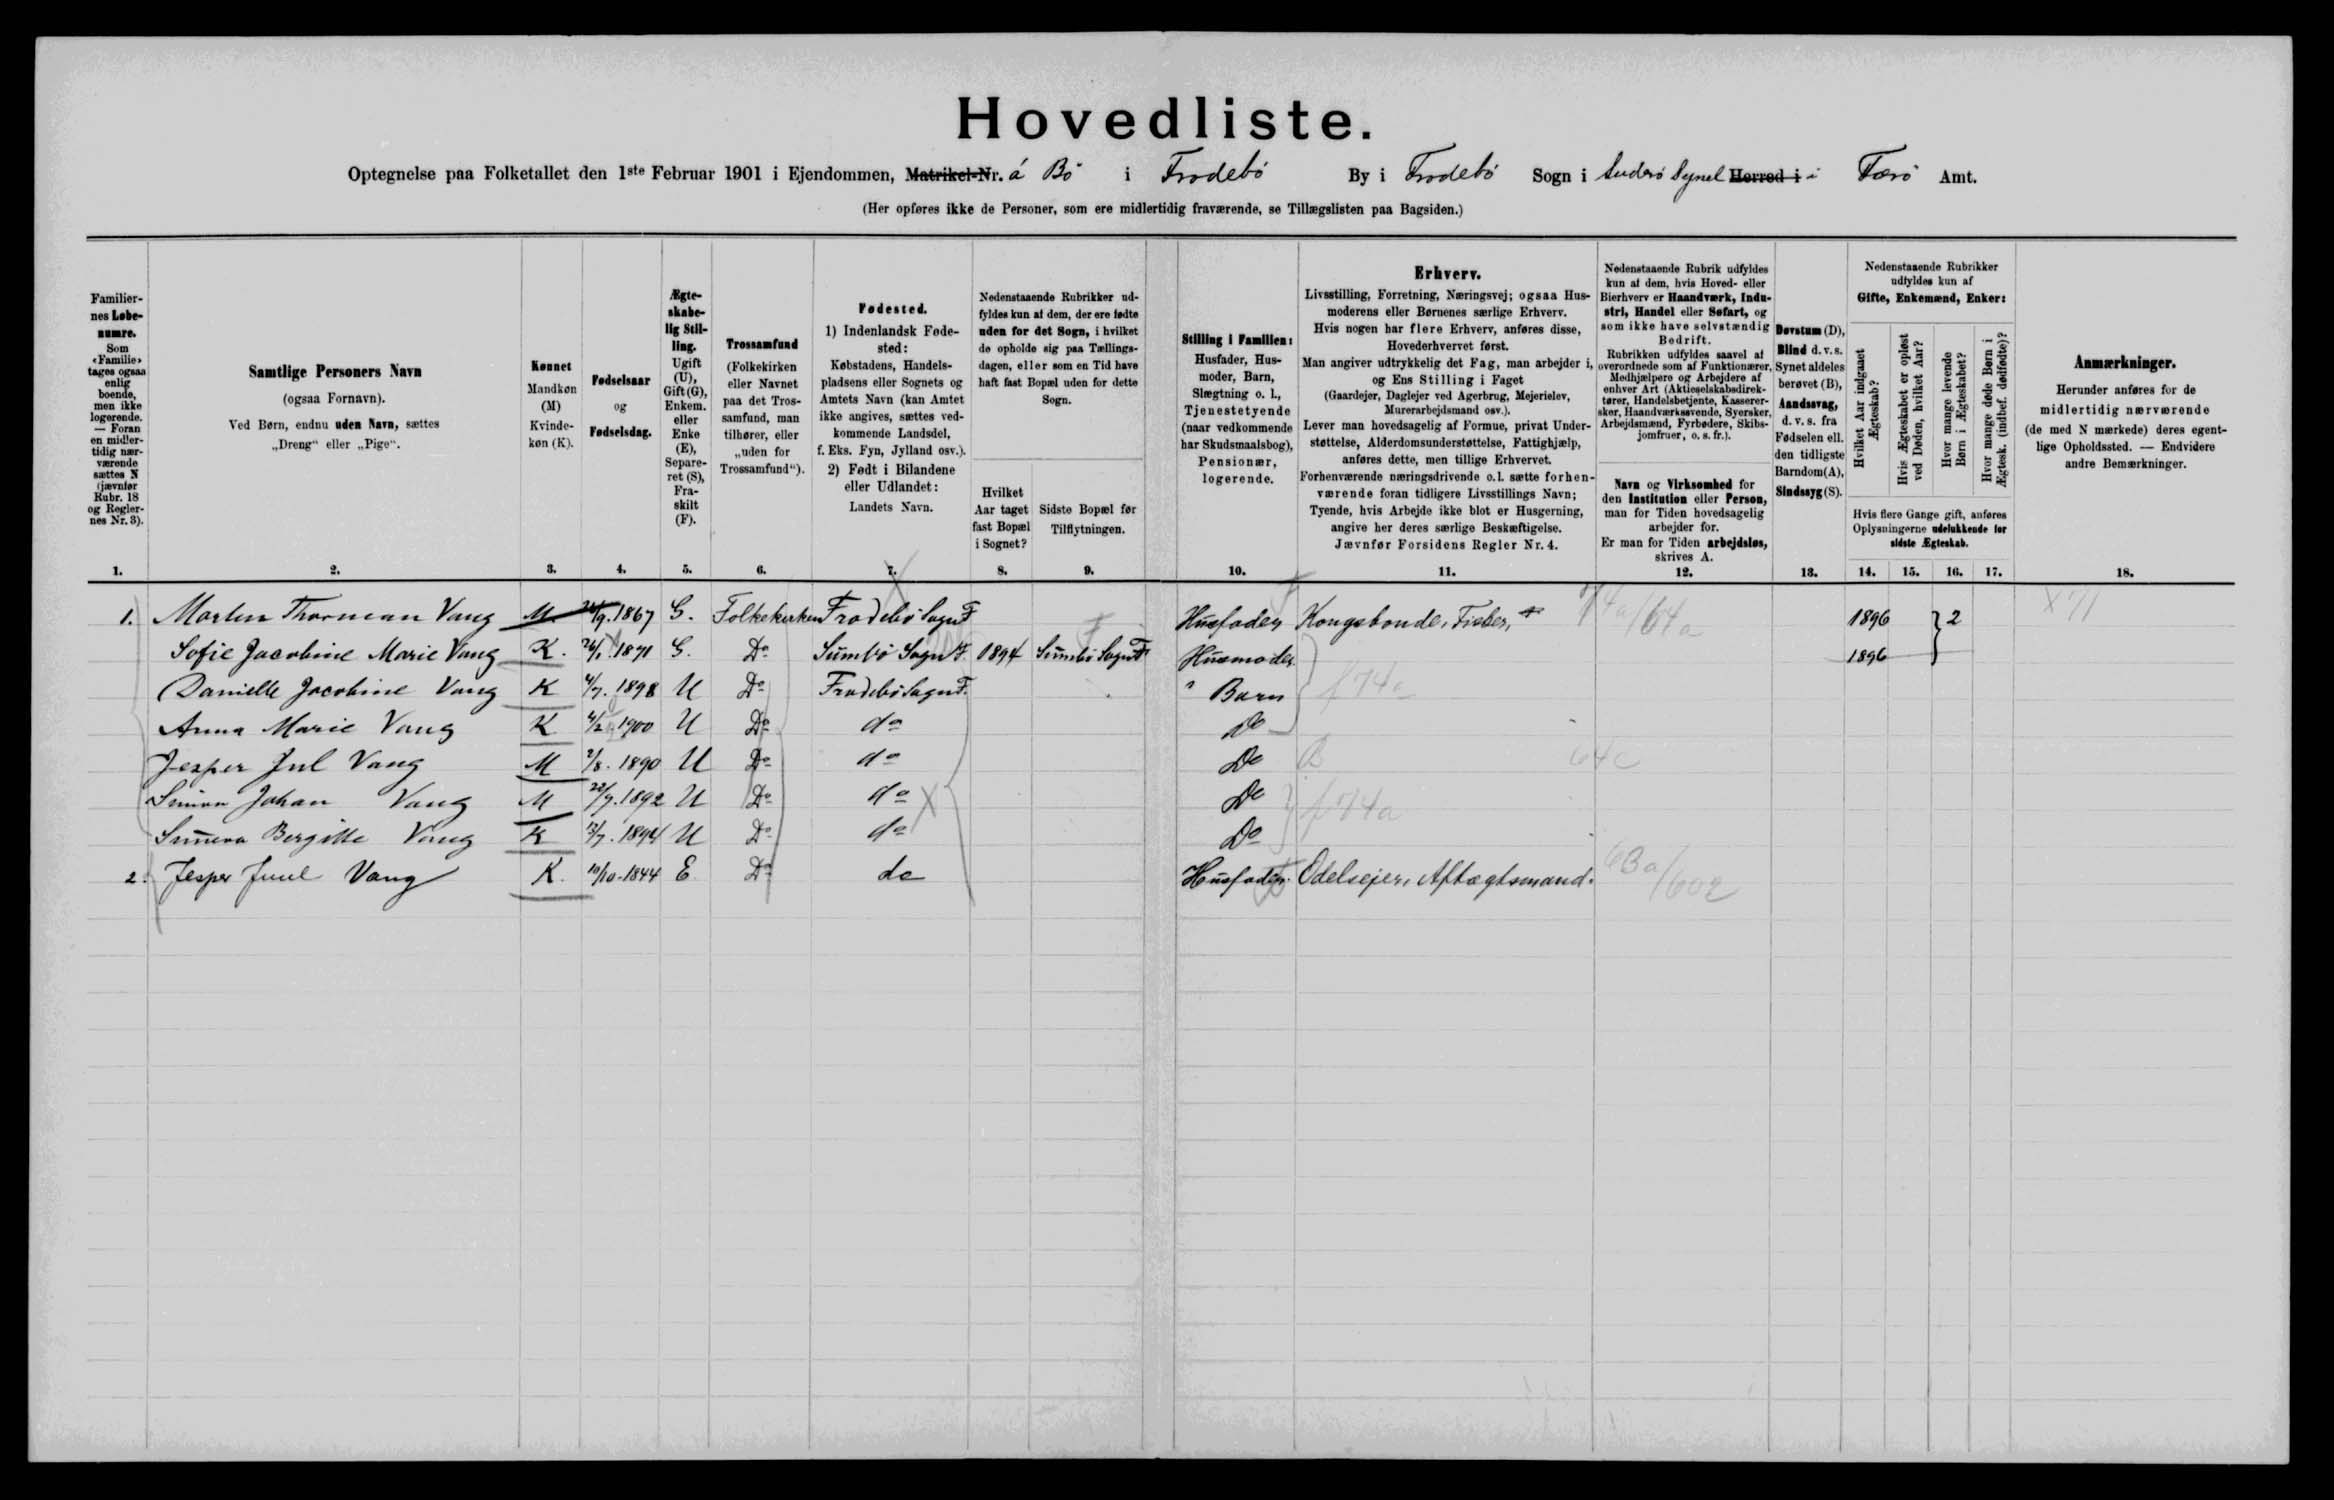 Hovedliste.
Optegnelse paa Folketallet den 1ste Februar 1901 i Ejendommen, Matrikel-Nr. á Bö i Frodebö By i Frodebö Sogn i Suderö Sysel Herred i i Færö Amt.
(Her opføres ikke de Personer, som ere midlertidig fraværende, se Tillægslisten paa Bagsiden.)
Familiernes Løbenumre.
Som «Familie» tages ogsaa enlig boende, men ikke logerende. — Foran en midlertidig nærværende sættes N (jævnfør Rubr. 18 og Reglernes Nr. 3).
Samtlige Personers Navn
(ogsaa Fornavn).
Ved Børn, endnu uden Navn, sættes
„Dreng“ eller „Pige“.
Kønnet
Mandkøn (M)
Kvindekøn (K).
Fødselsaar
og
Fødselsdag.
Ægteskabelig Stilling.
Ugift (U), Gift (G), Enkem. eller Enke (E), Separeret (S), Fraskilt (F).
Trossamfund
(Folkekirken eller Navnet paa det Trossamfund, man tilhører, eller „uden for Trossamfund“).
Fødested.
1) Indenlandsk Fødested:
Købstadens, Handelspladsens eller Sognets og Amtets Navn (kan Amtet ikke angives, sættes vedkommende Landsdel, f. Eks. Fyn, Jylland osv.).
2) Født i Bilandene eller Udlandet:
Landets Navn.
Nedenstaaende Rubrikker udfyldes kun af dem, der ere fødte uden for det Sogn, i hvilket de opholde sig paa Tællingsdagen, eller som en Tid have haft fast Bopæl uden for dette Sogn.
Hvilket Aar taget fast Bopæl i Sognet?
Sidste Bopæl før Tilflytningen.
Stilling i Familien:
Husfader, Husmoder, Barn, Slægtning o. l., Tjenestetyende (naar vedkommende har Skudsmaalsbog), Pensionær, logerende.
Erhverv.
Livsstilling, Forretning, Næringsvej; ogsaa Husmoderens eller Børnenes særlige Erhverv.
Hvis nogen har flere Erhverv, anføres disse, Hovederhvervet først.
Man angiver udtrykkelig det Fag, man arbejder i, og Ens Stilling i Faget
(Gaardejer, Daglejer ved Agerbrug, Mejerielev, Murerarbejdsmand osv.).
Lever man hovedsagelig af Formue, privat Understøttelse, Alderdomsunderstøttelse, Fattighjælp, anføres dette, men tillige Erhvervet.
Forhenværende næringsdrivende o. l. sætte forhenværende foran tidligere Livsstillings Navn;
Tyende, hvis Arbejde ikke blot er Husgerning, angive her deres særlige Beskæftigelse.
Jævnfør Forsidens Regler Nr. 4.
Nedenstaaende Rubrik udfyldes kun af dem, hvis Hoved- eller Bierhverv er Haandværk, Industri, Handel eller Søfart, og som ikke have selvstændig Bedrift.
Rubrikken udfyldes saavel af overordnede som af Funktionærer, Medhjælpere og Arbejdere af enhver Art (Aktieselskabsdirektører, Handelsbetjente, Kasserersker, Haandværkssvende, Syersker, Arbejdsmænd, Fyrbødere, Skibsjomfruer, o. s. fr.).
Navn og Virksomhed for den Institution eller Person, man for Tiden hovedsagelig arbejder for.
Er man for Tiden arbejdsløs, skrives A.
Døvstum (D), Blind d. v. s. Synet aldeles berøvet (B), Aandssvag, d. v. s. fra Fødselen ell. den tidligste Barndom (A), Sindssyg (S).
Nedenstaaende Rubrikker udfyldes kun af
Gifte, Enkemænd, Enker:
Hvilket Aar indgaaet Ægteskab?
Hvis Ægteskabet er opløst ved Døden, hvilket Aar?
Hvor mange levende Børn i Ægteskabet?
Hvor mange døde Børn i Ægtesk. (indbef. dødfødte)?
Hvis flere Gange gift, anføres Oplysningerne udelukkende for sidste Ægteskab.
Anmærkninger.
Herunder anføres for de midlertidig nærværende (de med N mærkede) deres egentlige Opholdssted. — Endvidere andre Bemærkninger.
1. 2. 3. 4. 5. 6. 7. 8. 9. 10. 11. 12. 13. 14. 15. 16. 17. 18.
1. Morten Thorman Vang M. 1867 G. Folkekirken Frodebö Sogn F Husfader Kongsbonde, Fisker, 74a/64a 1896 } 2 X 71
Sofie Jacobine Marie Vang K. 1871 G. Do Sumbö Sogn F. 1894 Sumbö Sogn F Husmoder 1896
Danielle Jacobine Vang K 4/7. 1898 U Do Frodebö Sogn F. " Barn f 74a
Anna Marie Vang K 4/2 1900 U Do do Do
Jesper Jul Vang M 2/8. 1890 U Do do Do B 64c
Simon Johan Vang M 22/7. 1892 U Do do X Do f 74a
Sunneva Bergitte Vang K 12/7. 1894 U Do do Do
2. Jesper Juul Vang K. 10/10-1844 E Do do Husfader Odelsejer, Aftægtsmand. 63a/602